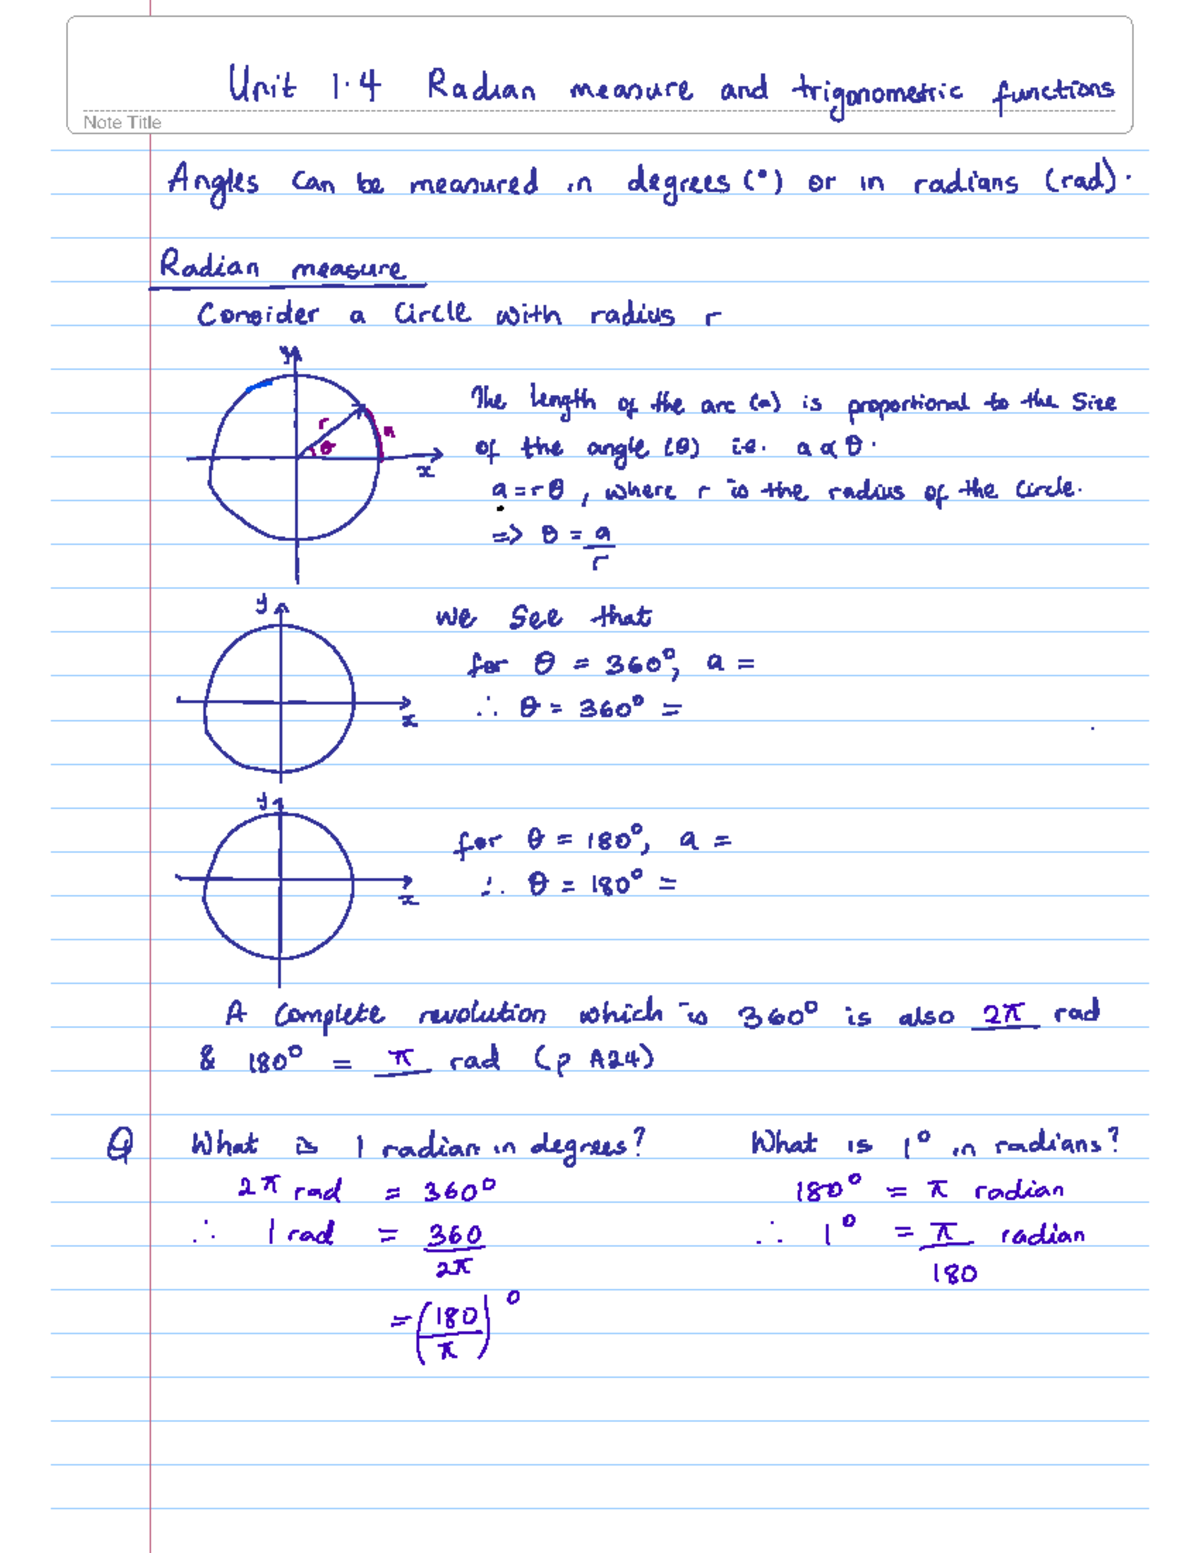 Unit 1.4 Radian measure and trigonometric functions
Note Title
Angles can be measured in degrees (°) or in radians (rad).
Radian measure
Consider a circle with radius r
y
r
θ
a
x
The length of the arc (a) is proportional to the size
of the angle (θ) i.e. a α θ.
a = rθ, where r is the radius of the circle.
=> θ = a/r
y
x
We see that
for θ = 360°, a =
∴ θ = 360° =
y
x
for θ = 180°, a =
∴ θ = 180° =
A complete revolution which is 360° is also 2π rad
& 180° = π rad (p A24)
Q What is 1 radian in degrees? What is 1° in radians?
2π rad = 360° 180° = π radian
∴ 1 rad = 360/2π ∴ 1° = π/180 radian
= (180/π)°